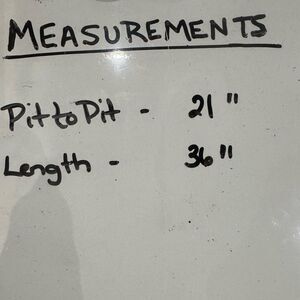 MEASUREMENTS
Pit to Pit - 21"
Length - 36"